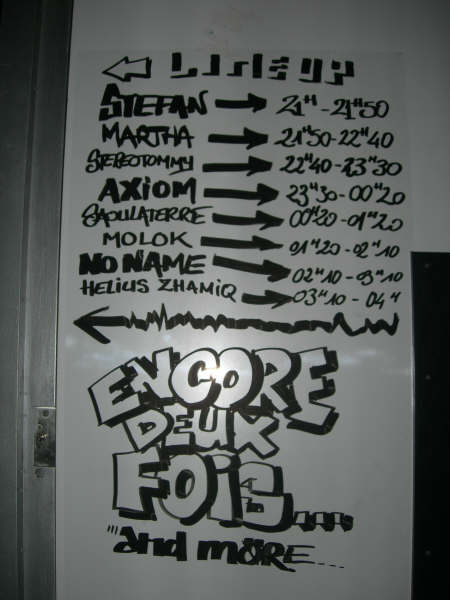 Line up
STEFAN 21H - 21H50
MARTHA 21H50 - 22H40
STEREOTOMMY 22H40 - 23H30
AXIOM 23H30 - 00H20
SAOULATERRE 00H20 - 01H20
MOLOK 01H20 - 02H10
NO NAME 02H10 - 03H10
HELIUS ZHAMIQ 03H10 - 04H
ENCORE
DEUX
FOIS....
"'and more....